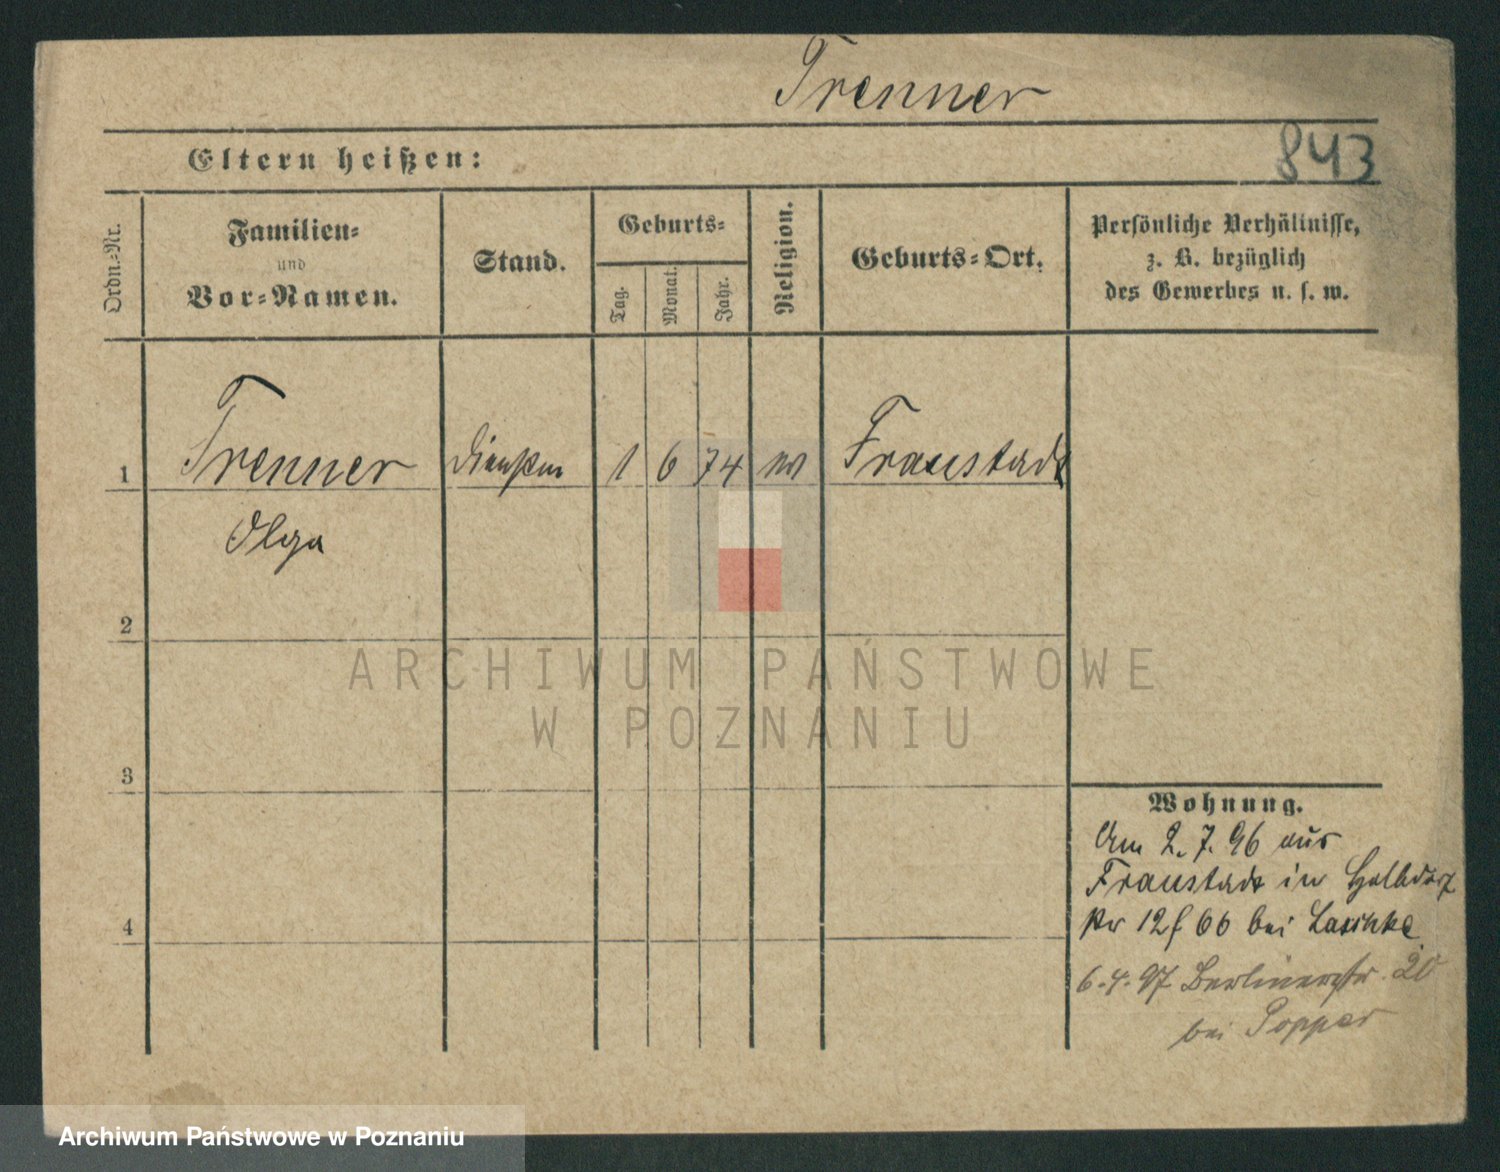 Trenner
843
Eltern heißen:
Ordn.-Nr.
Familien-
und
Vor-Namen.
Stand.
Geburts-
Tag.
Monat.
Jahr.
Religion.
Geburts-Ort.
Persönliche Verhältnisse,
z. B. bezüglich
des Gewerbes u. s. w.
1 Trenner Dienstm 1 6 74 Fraustadt
Olga
2
3
4
ARCHIWUM PAŃSTWOWE
W POZNANIU
Wohnung.
Am 2. 7. 96 aus
Fraustadt in Halbdorf
str 12 66 bei Laschke
6.4.97 Berlinerstr. 20
bei Popper
Archiwum Państwowe w Poznaniu